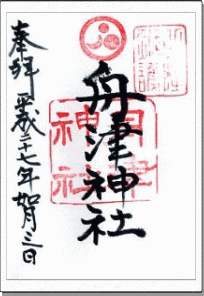 奉拝
平成二十七年如月三日
舟津神社
舟津
神社